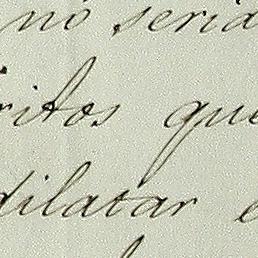 no seria
ritos que
dilatar e